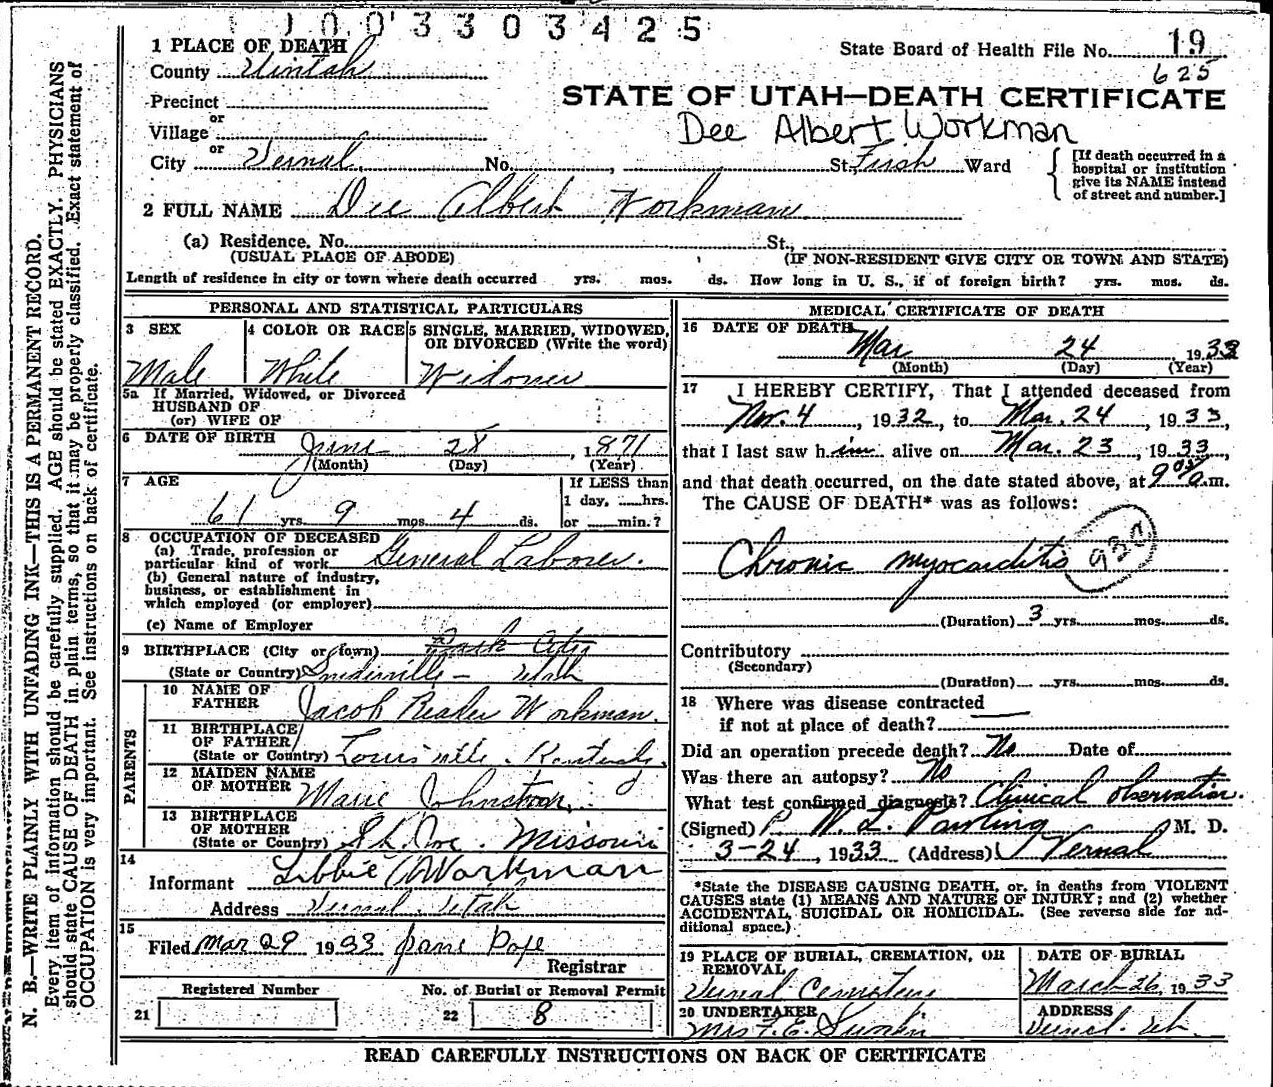 1003303425
1 PLACE OF DEATH
State Board of Health File No. 19
625
County Uintah
STATE OF UTAH—DEATH CERTIFICATE
Precinct
or
Dee Albert Workman
Village
or
City Vernal No. , St. First Ward
[If death occurred in a
hospital or institution
give its NAME instead
of street and number.]
2 FULL NAME Dee Albert Workman
(a) Residence, No. St.,
(USUAL PLACE OF ABODE) (IF NON-RESIDENT GIVE CITY OR TOWN AND STATE)
Length of residence in city or town where death occurred yrs. mos. ds. How long in U. S., if of foreign birth? yrs. mos. ds.
PERSONAL AND STATISTICAL PARTICULARS
3 SEX
Male
4 COLOR OR RACE
White
5 SINGLE, MARRIED, WIDOWED,
OR DIVORCED (Write the word)
Widower
5a If Married, Widowed, or Divorced
HUSBAND OF
(or) WIFE OF
6 DATE OF BIRTH June 28, 1871
(Month) (Day) (Year)
7 AGE
61 yrs. 9 mos 4 ds.
If LESS than
1 day, hrs.
or min.?
8 OCCUPATION OF DECEASED
(a) Trade, profession or
particular kind of work General Laborer.
(b) General nature of industry,
business, or establishment in
which employed (or employer)
(c) Name of Employer
9 BIRTHPLACE (City or town) Park City
(State or Country) Sniderville - Utah
PARENTS
10 NAME OF
FATHER Jacob Reader Workman.
11 BIRTHPLACE
OF FATHER
(State or Country) Louisville. Kentucky.
12 MAIDEN NAME
OF MOTHER Marie Johnston.
13 BIRTHPLACE
OF MOTHER
(State or Country) St. Joe. Missouri
14
Informant Libbie Workman
Address Vernal. Utah
15
Filed Mar 29 1933 Jane Pope
Registrar
Registered Number No. of Burial or Removal Permit
21 22 8
MEDICAL CERTIFICATE OF DEATH
16 DATE OF DEATH
Mar 24, 1933
(Month) (Day) (Year)
17 I HEREBY CERTIFY, That I attended deceased from
Nov. 4, 1932, to Mar. 24, 1933,
that I last saw h im alive on Mar. 23, 1933,
and that death occurred, on the date stated above, at 9 a.m.
The CAUSE OF DEATH* was as follows:
Chronic myocarditis
(Duration) 3 yrs. mos. ds.
Contributory
(Secondary)
(Duration) yrs. mos. ds.
18 Where was disease contracted
if not at place of death?
Did an operation precede death? No Date of
Was there an autopsy? No
What test confirmed diagnosis? Clinical observation.
(Signed) M. D.
3-24, 1933 (Address) Vernal
*State the DISEASE CAUSING DEATH, or, in deaths from VIOLENT
CAUSES state (1) MEANS AND NATURE OF INJURY; and (2) whether
ACCIDENTAL, SUICIDAL OR HOMICIDAL. (See reverse side for ad-
ditional space.)
19 PLACE OF BURIAL, CREMATION, OR
REMOVAL
Vernal Cemetery
DATE OF BURIAL
March 26, 1933
20 UNDERTAKER
Mrs F. E.
ADDRESS
Vernal. Ut.
READ CAREFULLY INSTRUCTIONS ON BACK OF CERTIFICATE
N. B.—WRITE PLAINLY WITH UNFADING INK—THIS IS A PERMANENT RECORD.
Every item of information should be carefully supplied. AGE should be stated EXACTLY. PHYSICIANS
should state CAUSE OF DEATH in plain terms, so that it may be properly classified. Exact statement of
OCCUPATION is very important. See instructions on back of certificate.